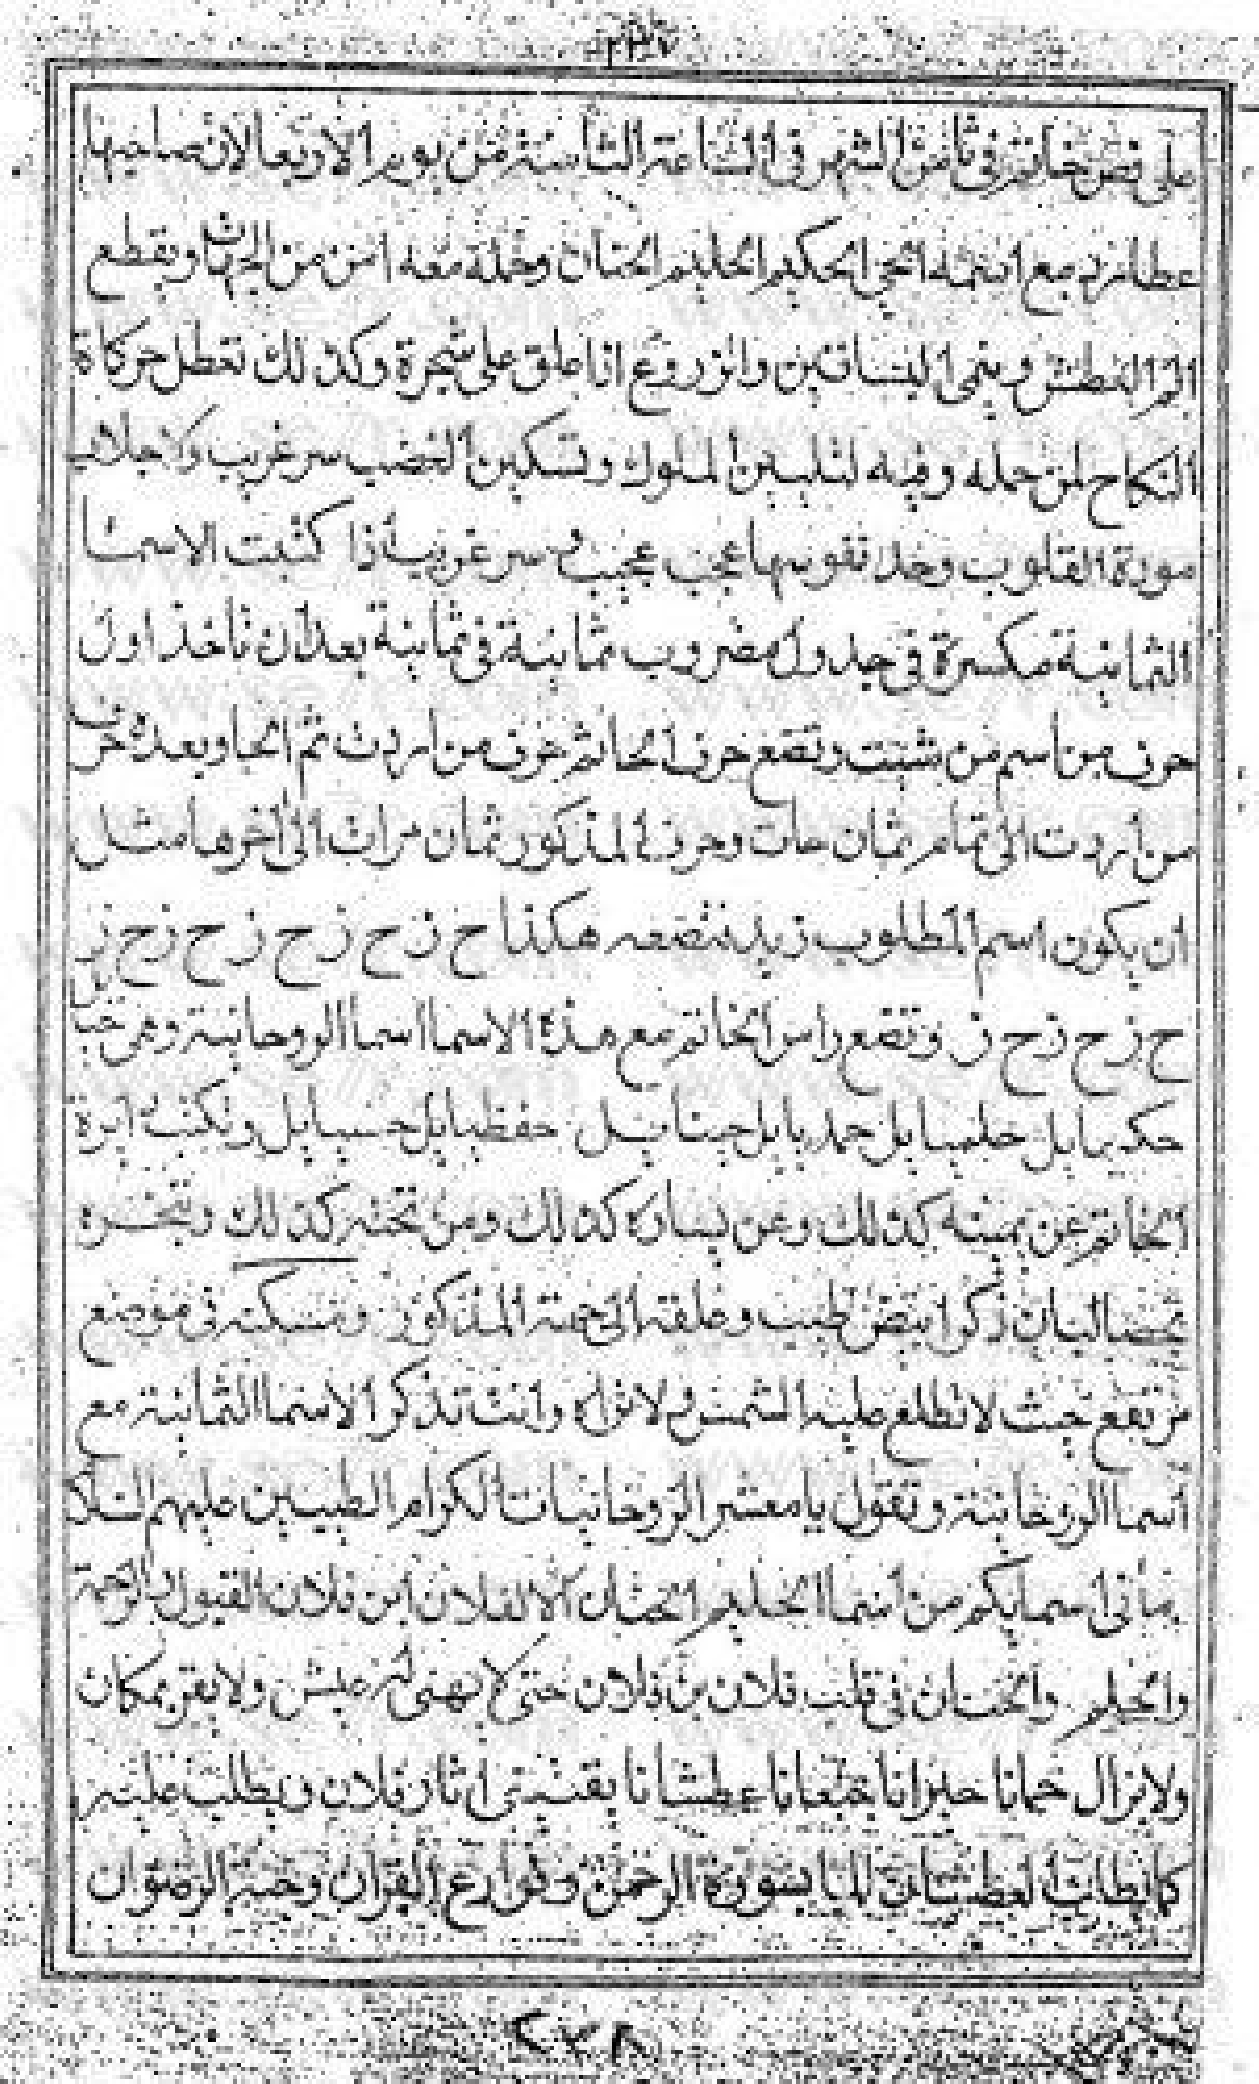 على فص خاتم في ثامن الشهر في الساعة الثامنة من يوم الاربعا لان صاحبها
عطارد مع اسمه الحي الحكيم الحليم الحنان وحمله معه امن من الجهات ويقطع
الم العطش وينمى البساتين والزروع اذا علق على شجرة وكذلك تعطل حركاة
النكاح لمن حمله وفيه لتليين الملوك وتسكين الغضب سر غريب ولاجلاب
مودة القلوب نفوسها عجب عجيب سر غريب اذا كتبت الاسما
الثمانية مكسرة في جدول مضروب ثمانية في ثمانية بعد ان تاخذ اول
حرف من اسم من شيت وتضع حرف الخاتم حرف من اردت ثم الحا وبعده حرف
من اردت الى تمام ثمان حات وحروف المذكور ثمان مرات الى اخرها مثل
ان يكون اسم المطلوب زيد فتضعه هكذا ح ز ح ز ح ز ح ز ح ز ح ز
ح ز ح ز ح ز وتضع راس الخاتم مع هذه الاسما اسما الروحانية وهم
حكيمايل حليمايل حميدايل حنانيل حفظيايل حسيبايل وتكتب ايرة
الخاتم عن يمينه كذلك وعن يساره كذلك ومن تحته كذلك وتبخره
بمصا لبان ذكر ابيض طيب وعلقه الى جهة المذكور ومسكنه في موضع
مرتفع حيث لا تطلع عليه الشمس ولا تراه وانت تذكر الاسما الثمانية مع
اسما الروحانية وتقول يا معشر الروحانيات الكرام الطيبين عليهم
بما في اسمايكم من اسما الحليم الحنان الا الفلان ابن فلان القبول بالرحمة
والحليم والحنان في قلب فلان بن فلان حتى لا يهنى له عيش ولا يقر بمكان
ولا يزال حيرانا عطشانا يقتفى اثار فلان ويطلب عليه
كما يطلب العطشان للما بسورة الرحمن وقوارع القران وحبة الرضوان
٢٣٨